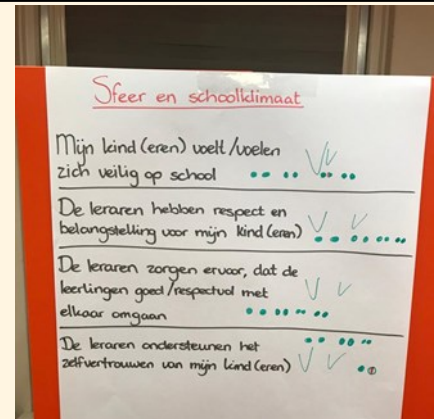 Sfeer en schoolklimaat
Mijn kind (eren) voelt /voelen
zich veilig op school
De leraren hebben respect en
belangstelling voor mijn kind (eren)
De leraren zorgen ervoor, dat de
leerlingen goed /respectvol met
elkaar omgaan
De leraren ondersteunen het
zelfvertrouwen van mijn kind (eren)